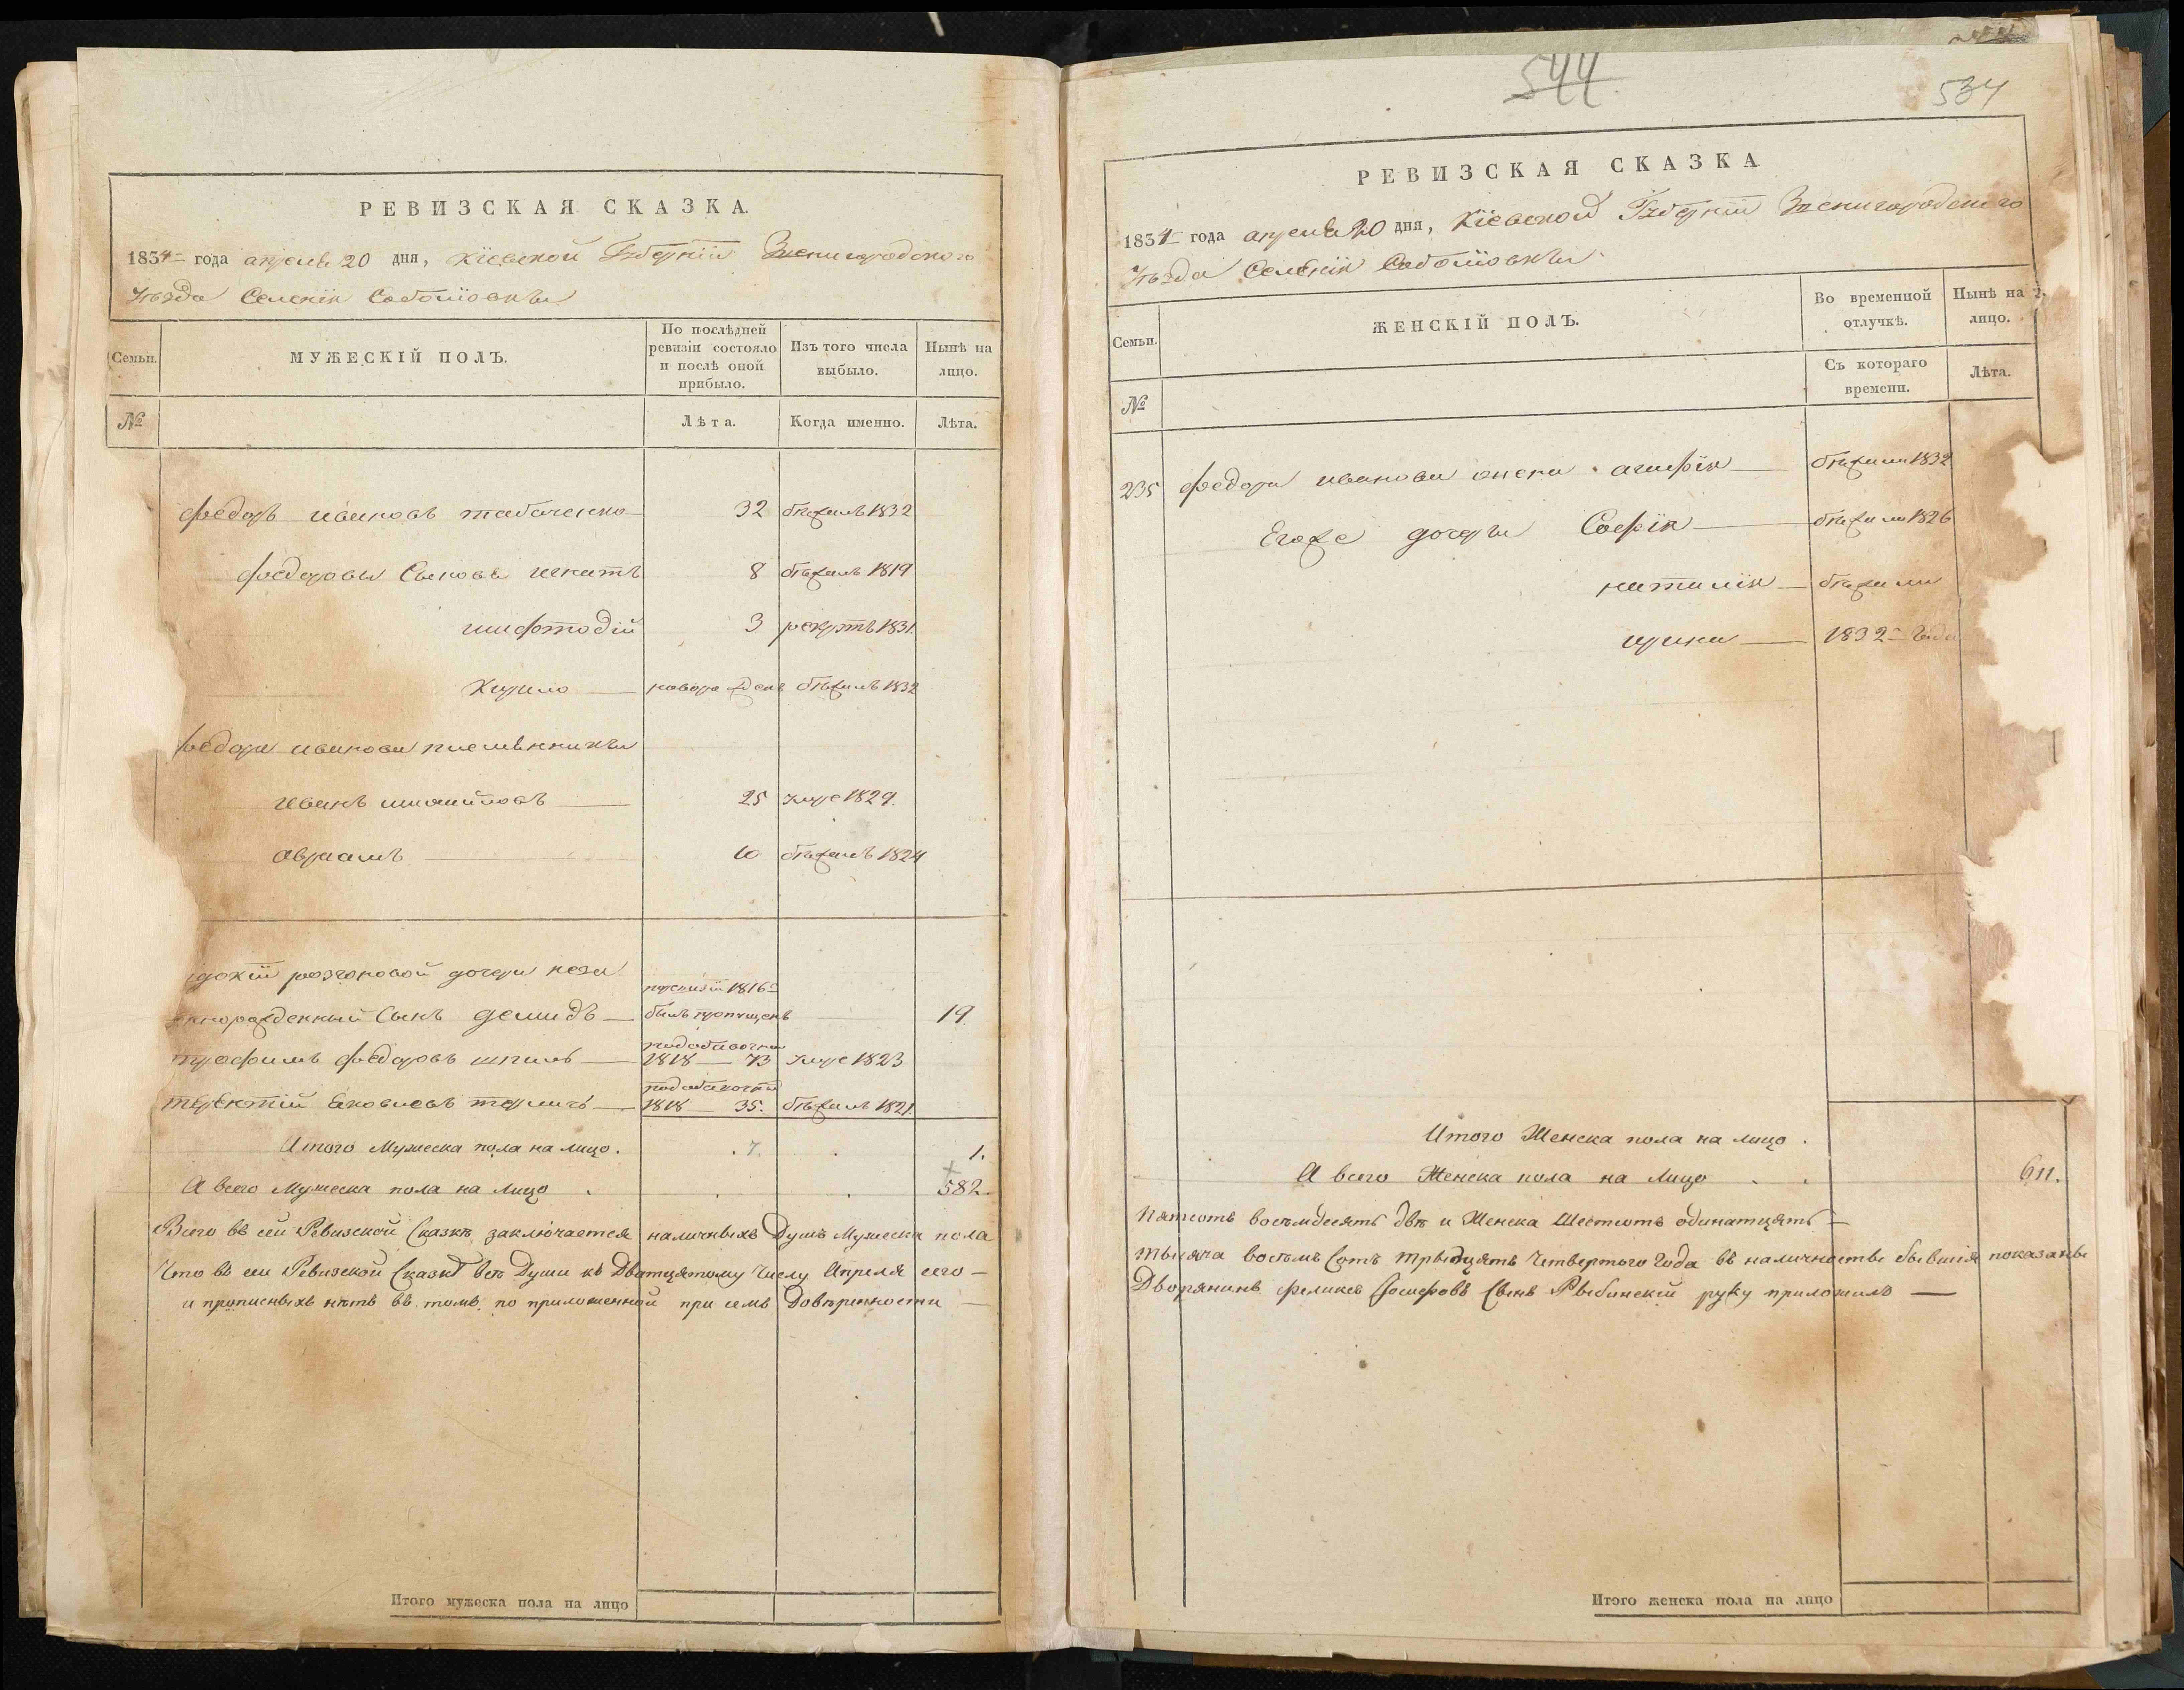 РЕВИЗСКАЯ СКАЗКА.
1834 года апреля 20 дня, Кіевской Губерніи Звенигородского
Уезда Селенія
Семьи.
МУЖЕСКІЙ ПОЛЪ.
По послѣдней ревизіи состояло и послѣ оной прибыло.
Изъ того числа выбыло.
Нынѣ на лицо.
№
Лѣта.
Когда именно.
Лѣта.
Федоръ Ивановъ табаченко 32 бѣжалъ 1832
Федоровы Сыновя Игнатъ 8 бѣжалъ 1819
3 рекрутъ 1831.
Кирило новорожденъ бѣжалъ 1832
Федора Иванова племянники
Иванъ 25 умре 1829.
Авраамъ 10 бѣжалъ 1824
дочери неза
ревизіи 1816
ннорожденный Сынъ Демидъ былъ пропущенъ 19.
трофимъ Федоровъ шпиль 1818 73 умре 1823
терентій Яковлевъ 1818 35. бѣжалъ 1821.
Итого Мужеска пола на лицо. 7. 1.
А всего Мужеска пола на лицо 582.
Всего въ сей Ревизской Сказкѣ заключается наличныхъ Душъ Мужеска пола
Что въ сей Ревизской Сказкѣ всѣ Души къ Дватцятому Числу Апреля сего
и прописныхъ нѣтъ въ томъ, по приложенной при семъ Довѣренности
Итого мужеска пола на лицо
544
534
РЕВИЗСКАЯ СКАЗКА
1834 года апреля 20 дня, Кіевской Губерніи Звенигородского
Уезда Селенія
Семьи.
ЖЕНСКІЙ ПОЛЪ.
Во временной отлучкѣ.
Нынѣ на лицо.
№
Съ котораго времени.
Лѣта.
235 Федора Иванова жена Агафія бѣжала 1832
Егоже дочери Софія бѣжала 1826
наталія бѣжали
ирина 1832 Года
Итого Женска пола на лицо.
А всего Женска пола на Лицо 611.
Пятьсотъ восемдесятъ двѣ и Женска Шестьсотъ одинатцять
тысяча восемъ Сотъ трыдцять Четвертого Года въ наличностве бывшія показаны
Дворянинъ Феликсъ Іосифовъ Сынъ Рыбинскій руку приложилъ
Итого женска пола на лицо